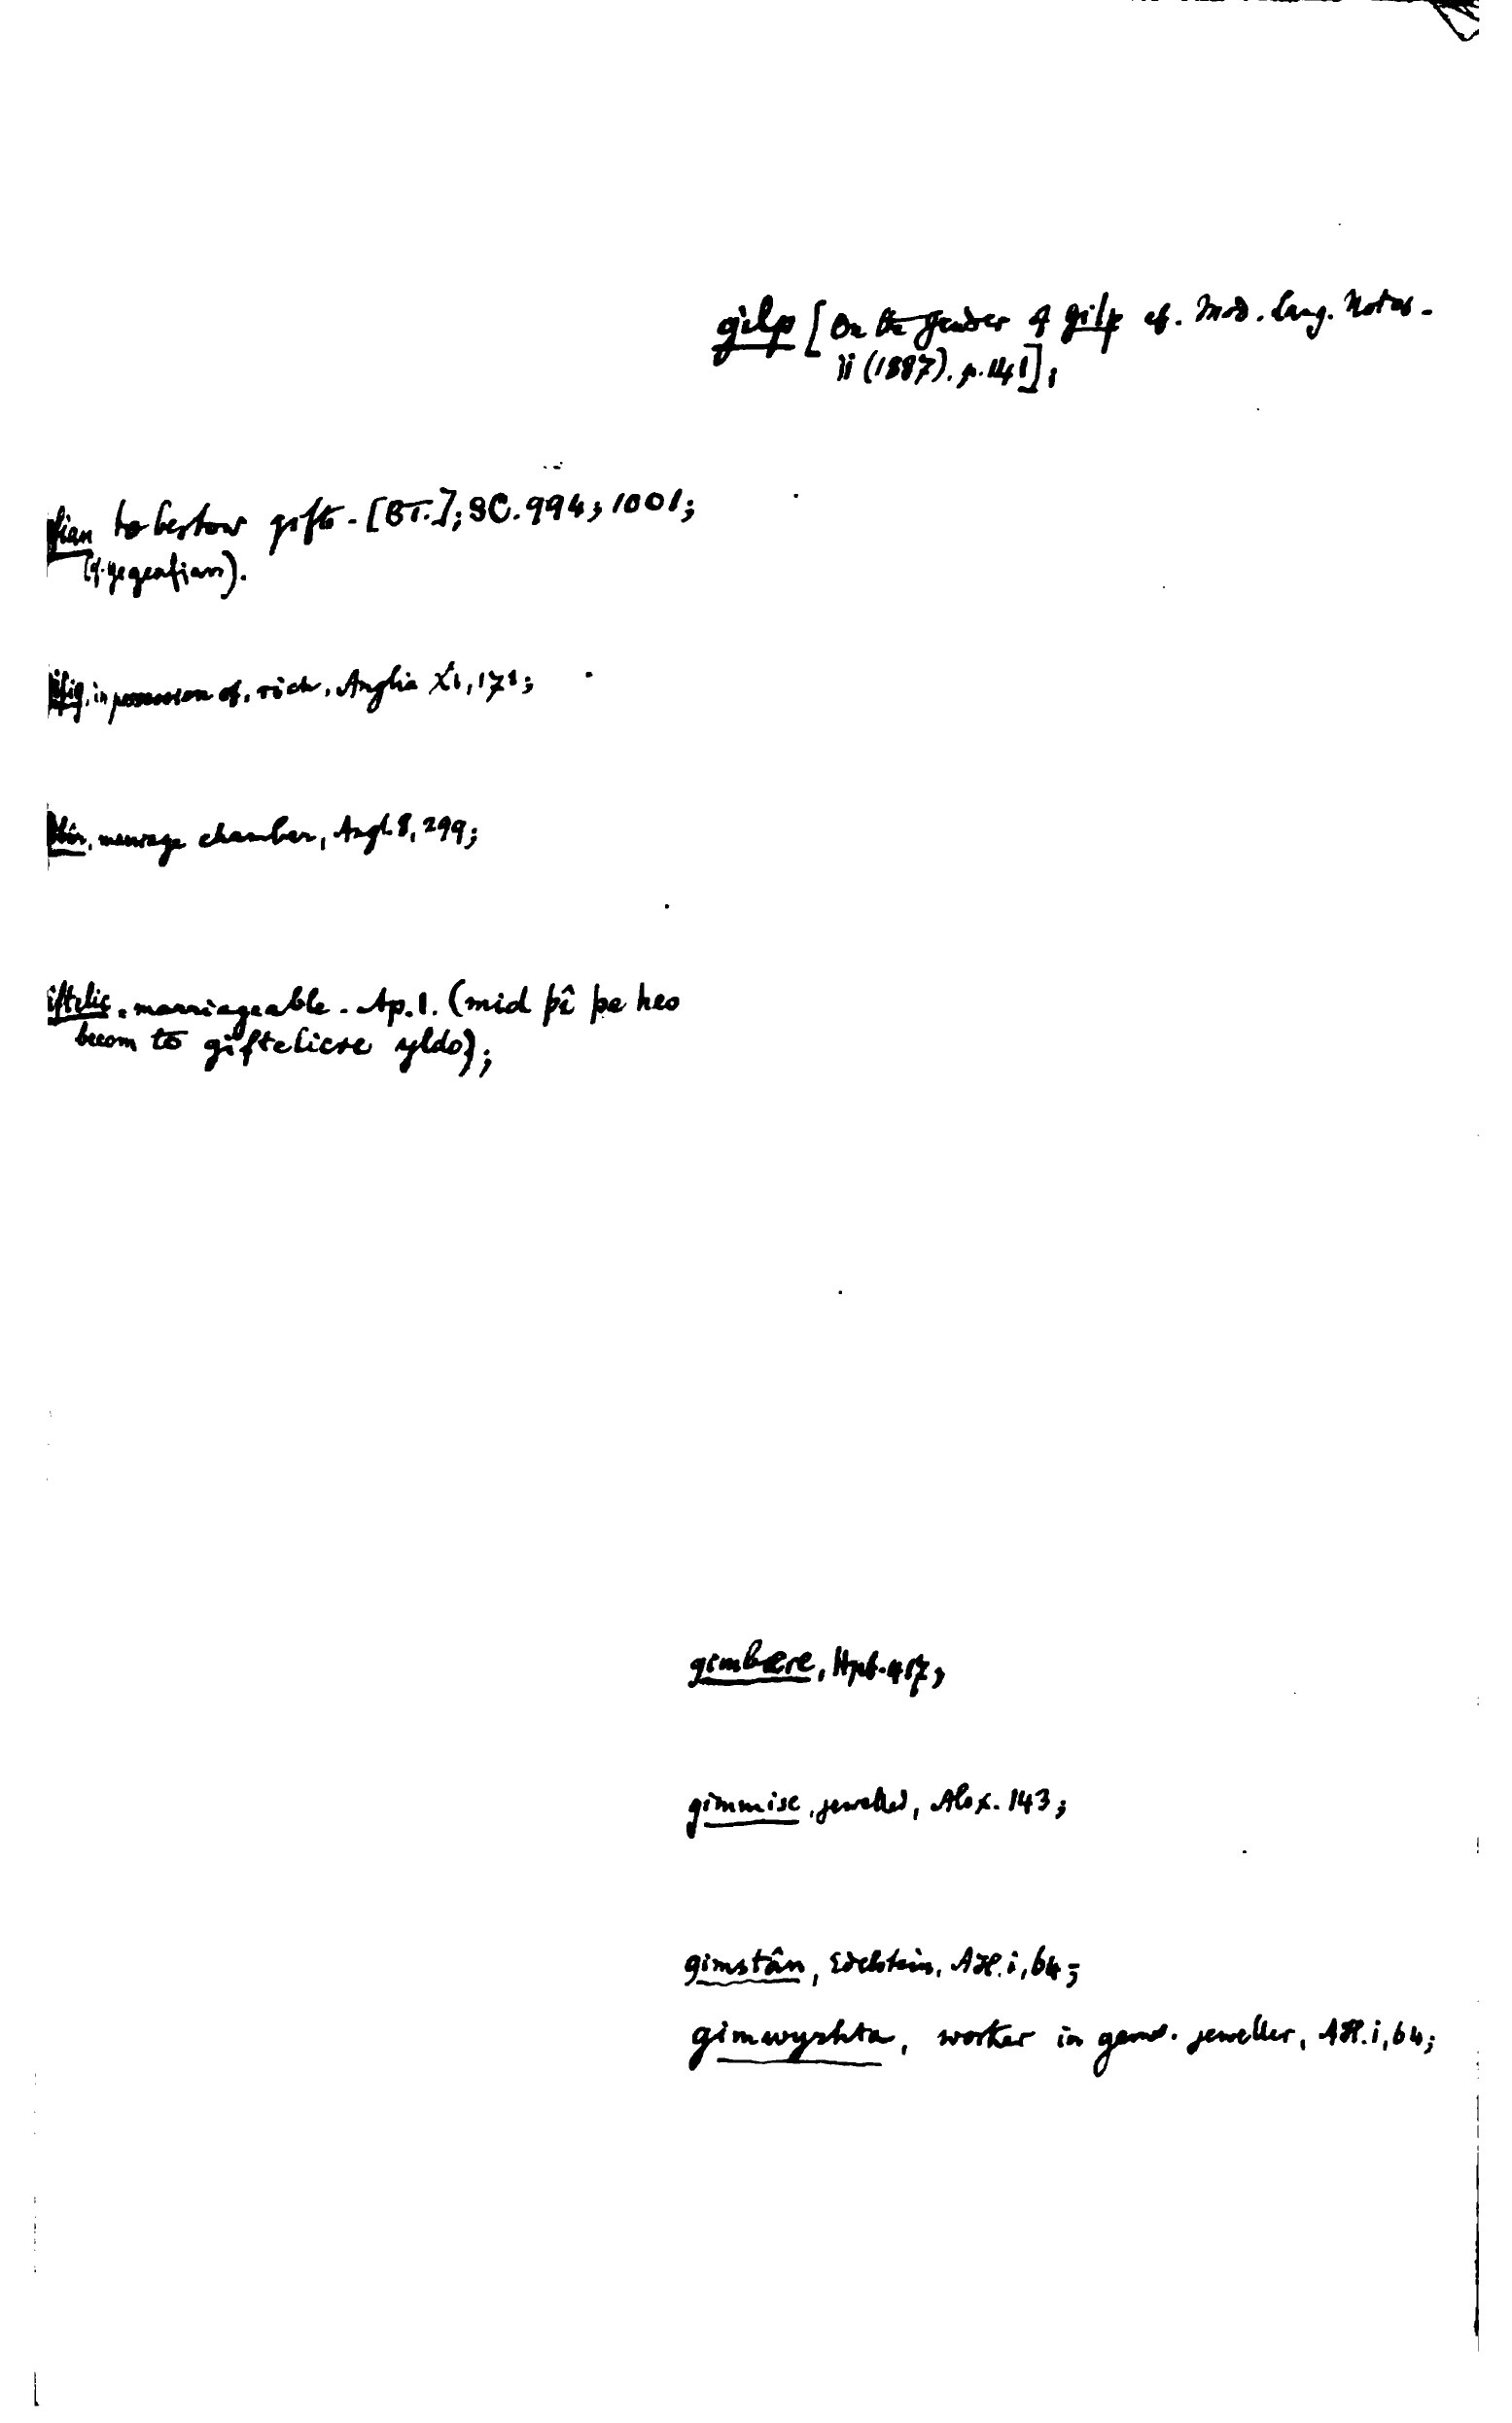 gilp [On the gender of gilp cf. Mod. Lang. Notes.
ii (1887). p. 141];
fian to bestow gifts - [BT.]; SC. 994; 1001;
(cf. gegeafian).
ifig, in possession of, rich, Anglia XI, 171;
chamber, Angl. 8, 299;
iftelic, marriageable. Ap. 1. (mid þî þe heo
becom to giftelicre yldo);
gimbære, Hpt. 417;
gimmisc, jewelled, Alex. 143;
gimstân, Edelstein, ÆH. i, 64;
gimwyrhta, worker in gems. jeweller, ÆH. i, 64;